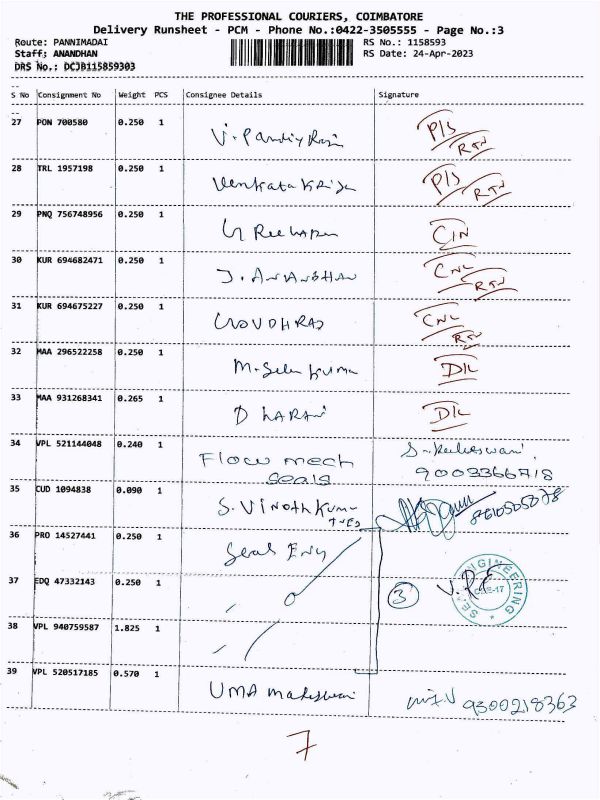 THE PROFESSIONAL COURIERS, COIMBATORE
Delivery Runsheet - PCM - Phone No.:0422-3505555 - Page No.:3
Route: PANNIMADAI RS No.: 1158593
Staff: ANANDHAN RS Date: 24-Apr-2023
DRS No.: DCJB115859303
S No Consignment No Weight PCS Consignee Details Signature
27 PON 700580 0.250 1 P/S
RTN
28 TRL 1957198 0.250 1 Venkata P/S
RTN
29 PNQ 756748956 0.250 1
30 KUR 694682471 0.250 1 CNL
RTN
31 KUR 694675227 0.250 1 CNL
RTN
32 MAA 296522258 0.250 1 D/L
33 MAA 931268341 0.265 1 D/L
34 VPL 521144048 0.240 1 Flow mech
seals 9003366718
35 CUD 1094838 0.090 1 S. Vinoth Kumar
36 PRO 14527441 0.250 1 Seal Eng
37 EDQ 47332143 0.250 1 3 ENGINEERING
38 VPL 940759587 1.825 1
39 VPL 520517185 0.570 1 UMA maheswari 9300218363
7